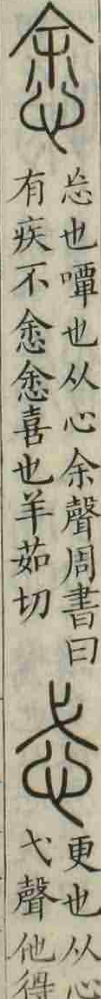 悆
忘也嘽也从心余聲周書曰
有疾不悆悆喜也羊茹切
忒
更也从心
弋聲他得